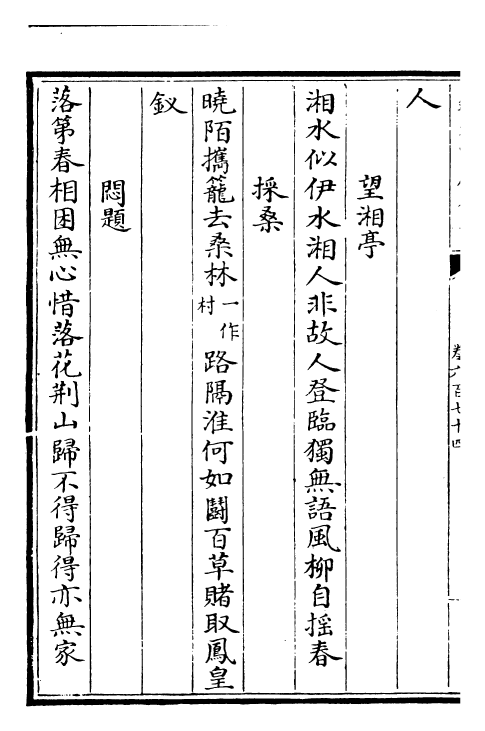 卷六百七十四
人
望湘亭
湘水似伊水湘人非故人登臨獨無語風柳自揺春
採桑
曉陌攜籠去桑林一作村路隔淮何如鬬百草賭取鳳皇
釵
悶題
落第春相困無心惜落花荆山歸不得歸得亦無家